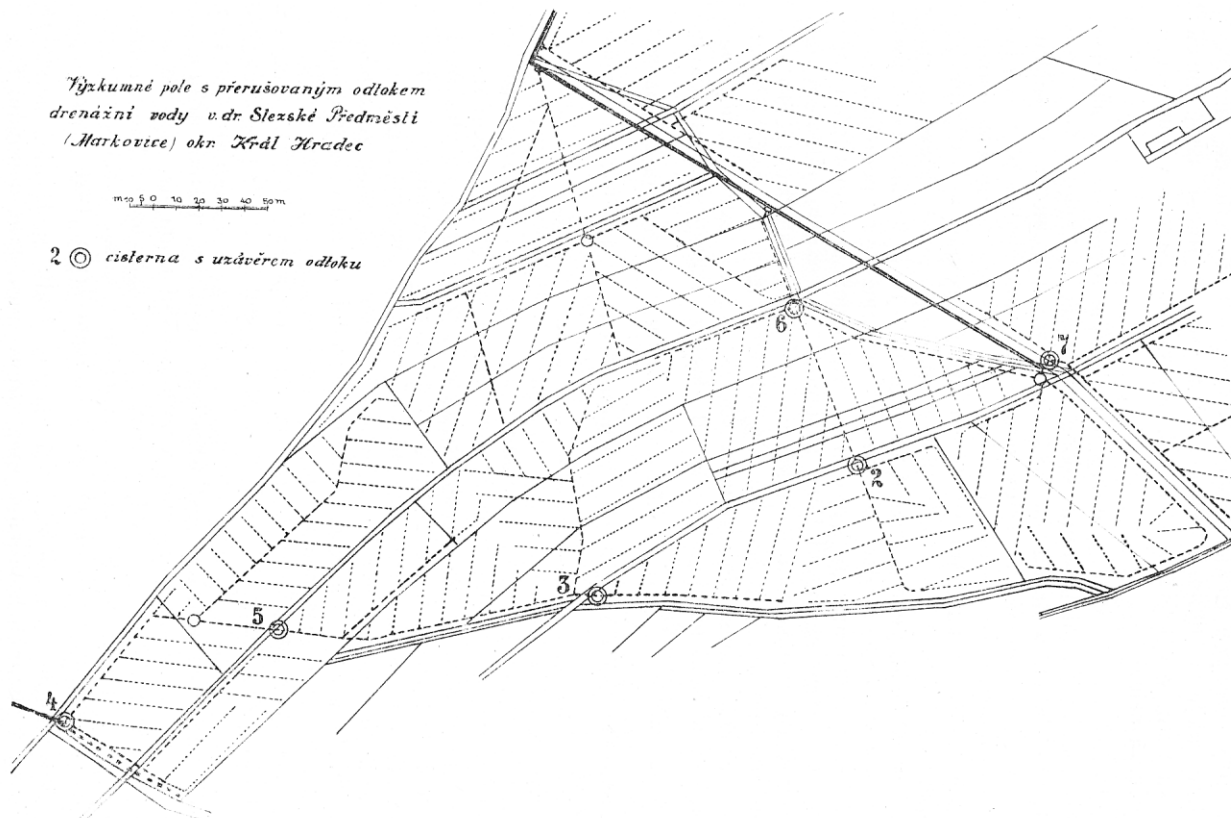 Výzkumné pole s přerušovaným odtokem
drenážní vody v. dr. Slezské Předměstí
(Markovice) okr. Král Hradec
m10 5 0 10 20 30 40 50m
2 cisterna s uzávěrem odtoku
6
7
2
3
5
4